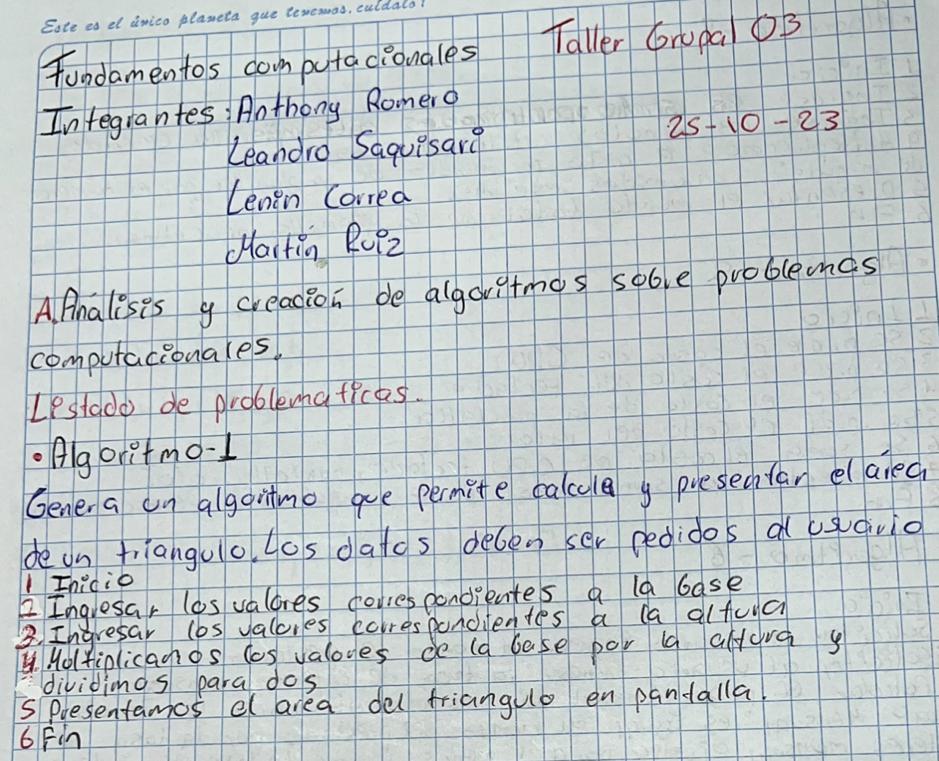 Este es el único planeta que tenemos. cuídalo!
Taller Grupal 03
Fundamentos computacionales
Integrantes: Anthony Romero
25-10-23
Leandro Saquisari
Lenin Correa
Martin Ruiz
A. Análisis y creación de algoritmos sobre problemas
computacionales.
Listado de problematicas.
• Algoritmo-1
Genera un algoritmo que permite calcula y presentar el área
de un triangulo. Los datos deben ser pedidos al usuario
1 Inicio
2 Ingresar los valores correspondientes a la base
3. Ingresar los valores correspondientes a la altura
4. Multiplicamos los valores de la base por la altura y
dividimos para dos
5 Presentamos el area del triangulo en pantalla.
6 Fin